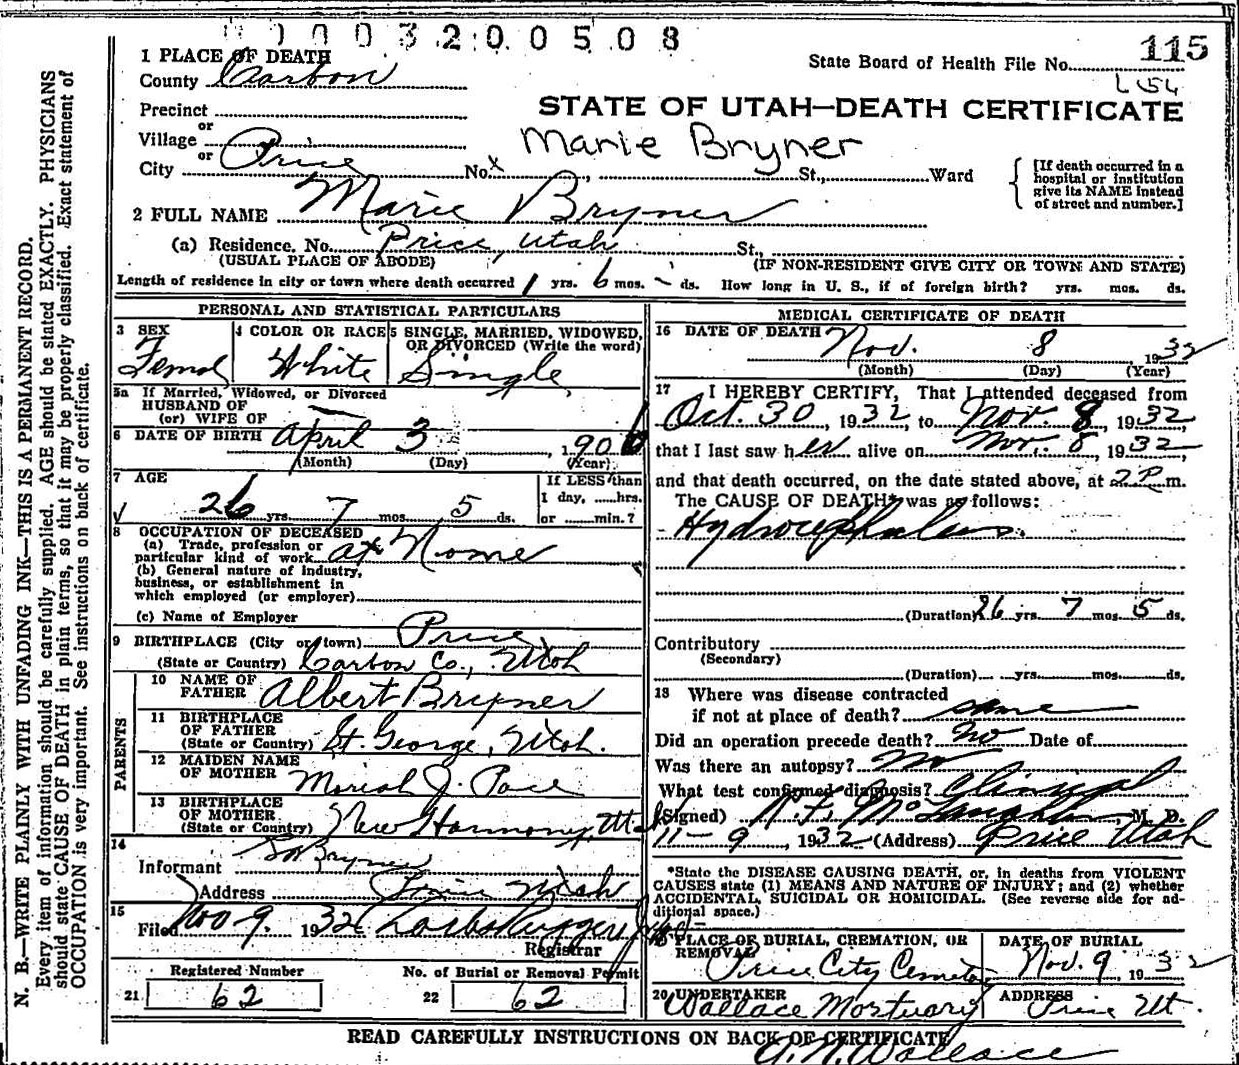 0003200508
115
1 PLACE OF DEATH
State Board of Health File No.
County Carbon
STATE OF UTAH—DEATH CERTIFICATE
Precinct
or
Village
Marie Bryner
or
City Price No. x , St., Ward
[If death occurred in a hospital or institution give its NAME instead of street and number.]
2 FULL NAME Marie Bryner
(a) Residence. No. Price, Utah St.,
(USUAL PLACE OF ABODE) (IF NON-RESIDENT GIVE CITY OR TOWN AND STATE)
Length of residence in city or town where death occurred 1 yrs. 6 mos. - ds. How long in U. S., if of foreign birth? yrs. mos. ds.
PERSONAL AND STATISTICAL PARTICULARS
3 SEX Femal
4 COLOR OR RACE White
5 SINGLE, MARRIED, WIDOWED, OR DIVORCED (Write the word) Single
5a If Married, Widowed, or Divorced
HUSBAND OF
(or) WIFE OF
6 DATE OF BIRTH April 3, 1906
(Month) (Day) (Year)
7 AGE
26 yrs. 7 mos. 5 ds.
If LESS than 1 day, hrs. or min.?
8 OCCUPATION OF DECEASED
(a) Trade, profession or particular kind of work at Home
(b) General nature of industry, business, or establishment in which employed (or employer)
(c) Name of Employer
9 BIRTHPLACE (City or town) Price
(State or Country) Carbon Co., Utah
PARENTS
10 NAME OF FATHER Albert Bryner
11 BIRTHPLACE OF FATHER (State or Country) St. George, Utah.
12 MAIDEN NAME OF MOTHER Mariah J. Pace
13 BIRTHPLACE OF MOTHER (State or Country) New Harmony, Utah
14
Informant Bryner
Address Price Utah
15
Filed Nov 9. 1932
Registrar
Registered Number
21 62
No. of Burial or Removal Permit
22 62
MEDICAL CERTIFICATE OF DEATH
16 DATE OF DEATH Nov. 8 1932
(Month) (Day) (Year)
17 I HEREBY CERTIFY, That I attended deceased from
Oct. 30, 1932, to Nov. 8, 1932
that I last saw her alive on Nov. 8, 1932,
and that death occurred, on the date stated above, at 2 P m.
The CAUSE OF DEATH* was as follows:
Hydrocephalus.
(Duration) 26 yrs. 7 mos. 5 ds.
Contributory
(Secondary)
(Duration) yrs. mos. ds.
18 Where was disease contracted
if not at place of death? same
Did an operation precede death? No Date of
Was there an autopsy? No
What test confirmed diagnosis? Clinical
(Signed) McLaughlin, M. D.
11-9, 1932 (Address) Price Utah
*State the DISEASE CAUSING DEATH, or, in deaths from VIOLENT CAUSES state (1) MEANS AND NATURE OF INJURY; and (2) whether ACCIDENTAL, SUICIDAL OR HOMICIDAL. (See reverse side for additional space.)
19 PLACE OF BURIAL, CREMATION, OR REMOVAL Price City Cemetery
DATE OF BURIAL Nov. 9 1932
20 UNDERTAKER Wallace Mortuary
ADDRESS Price Ut.
READ CAREFULLY INSTRUCTIONS ON BACK OF CERTIFICATE
Wallace
N. B.—WRITE PLAINLY WITH UNFADING INK—THIS IS A PERMANENT RECORD.
Every item of information should be carefully supplied. AGE should be stated EXACTLY. PHYSICIANS
should state CAUSE OF DEATH in plain terms, so that it may be properly classified. Exact statement of
OCCUPATION is very important. See instructions on back of certificate.